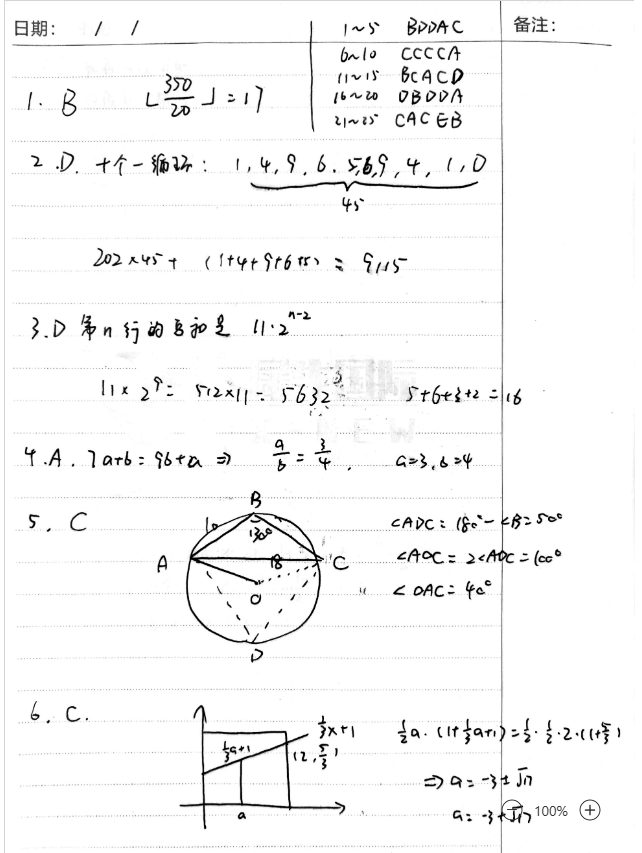 日期: / /
备注:
1~5 BDDAC
6~10 CCCCA
11~15 BCACD
16~20 DBDDA
21~25 CACEB
1. B ⌊350/20⌋=17
2.D. 十个一循环: 1,4,9,6.5,6,9,4,1,0
45
202×45+(1+4+9+6+5)=9115
3.D 第n行的和是 11·2^(n-2)
11×2^9=512×11=5632 5+6+3+2=16
4.A. 7a+b=9b+a ⇒ a/b=3/4. a=3,b=4
5. C
B
10
130°
A 18 C
O
D
<ADC=180°-<B=50°
<AOC=2<ADC=100°
<OAC=40°
6. C.
1/3x+1
1/3a+1
(2,5/3)
a
1/2a·(1+1/3a+1)=1/2·1/2·2·(1+5/3)
⇒a=-3±√17
a=-3+√17
100%